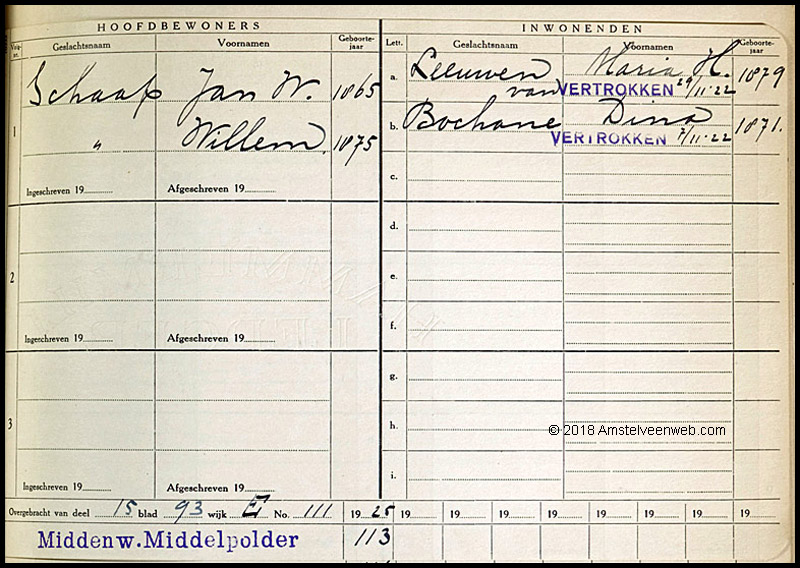 HOOFDBEWONERS
INWONENDEN
Volgnr. Geslachtsnaam Voornamen Geboortejaar Lett. Geslachtsnaam Voornamen Geboortejaar
1 Schaap Jan W. 1865
„ Willem. 1875
Ingeschreven 19 Afgeschreven 19
a. Leeuwen Maria H. 1879
van VERTROKKEN 29/11-22
b. Bochane Dina 1871.
VERTROKKEN 7/11-22
c.
2
Ingeschreven 19 Afgeschreven 19
d.
e.
f.
3
Ingeschreven 19 Afgeschreven 19
g.
h.
i.
© 2018 Amstelveenweb.com
Overgebracht van deel 15 blad 93 wijk E No. 111 19 25 19 19 19 19 19 19 19 19
Middenw.Middelpolder 113